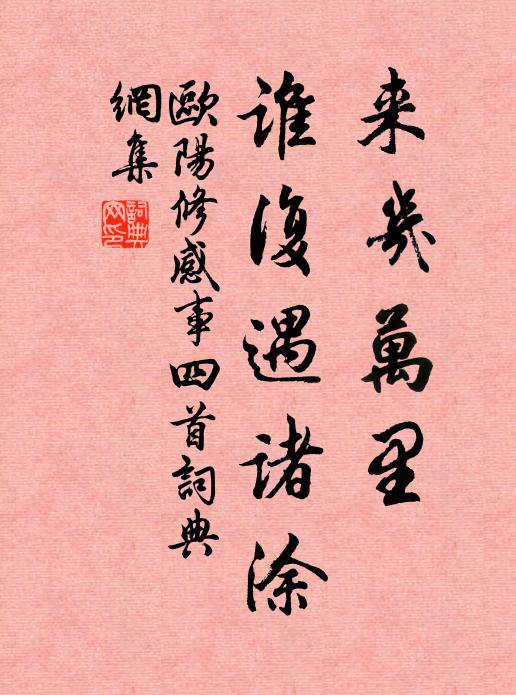 来幾萬里
誰復遇諸涂
歐陽修感事四首詞典
網集
詞典
网印